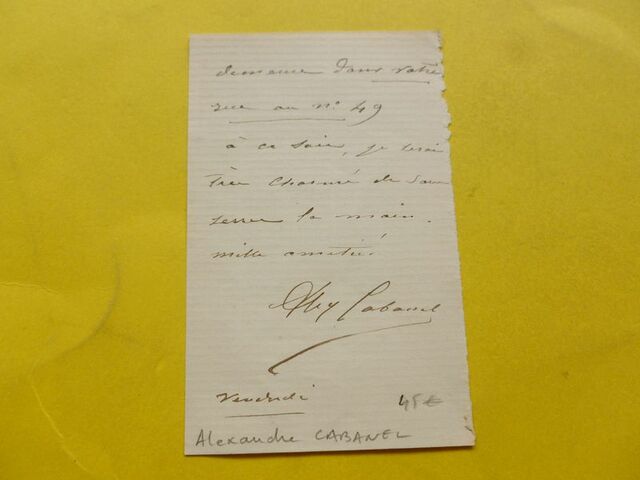 demeure dans votre
rue au n° 49
à ce soir, je serai
très charmé de vous
serrer la main.
mille amitiés
Alex Cabanel
Vendredi
45€
Alexandre CABANEL